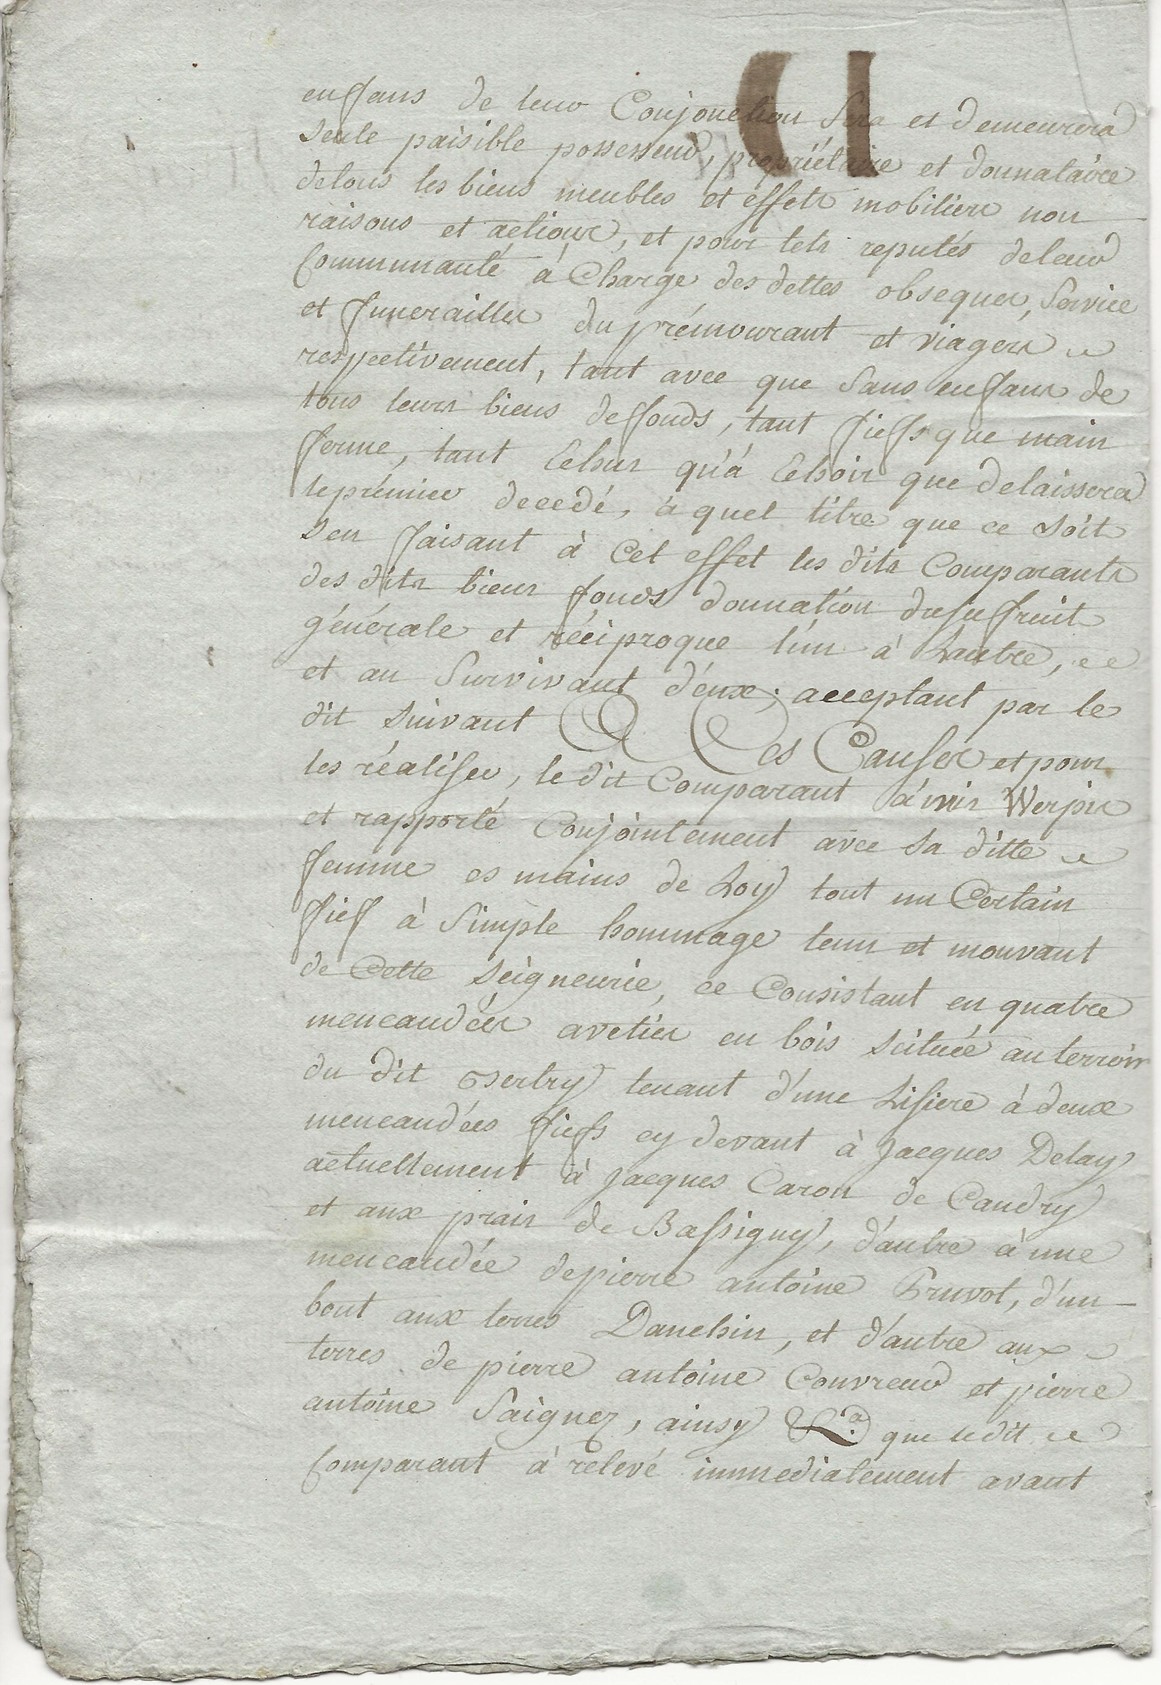 enfans de leur Conjonction Sera et demeurera
Seule paisible possesseur, propriétaire et donnatairee
detous les biens meubles et effets mobiliers non
raisons et actions, et pour tels reputés deleur
Communauté à Charge des dettes obseques, Service
et funerailles du prémourant et viagers
respectivement, tant avec que Sans enfans de
tous leurs biens defonds, tant fiefs que main
ferme, tant Echus qu'à Echoir que delaissera
leprémier decedé, à quel titre que ce Soit
Sen faisant à Cet effet les dits Comparants
des dits biens fonds donnation dusufruit
générale et réciproque l'un à Lautre,
et au Survivant d'eux; acceptant par le
dit Suivant Ces Causes et pour
les réaliser, le dit Comparant à mis Werpis
et rapporté Conjointement avec Sa ditte
femme es mains de Loy tout un Certain
fief à Simple hommage tenu et mouvant
de Cette Seigneurie, ce Consistant en quatre
mencaudées aveties en bois Scituée au terroir
du dit Bertry tenant d'une Lisiere à deux
mencaudées fiefs cy devant à Jacques Delay
actuellement à Jacques Caron de Caudry
et aux prais de Bassigny, d'autre à une
mencaudée depierre antoine Pruvot, d'un
bout aux terres Danchin, et d'autre aux
terres de pierre antoine Couvreur et pierre
antoine Taignez, ainsy &.a que ledit
Comparant à relevé immediatement avant